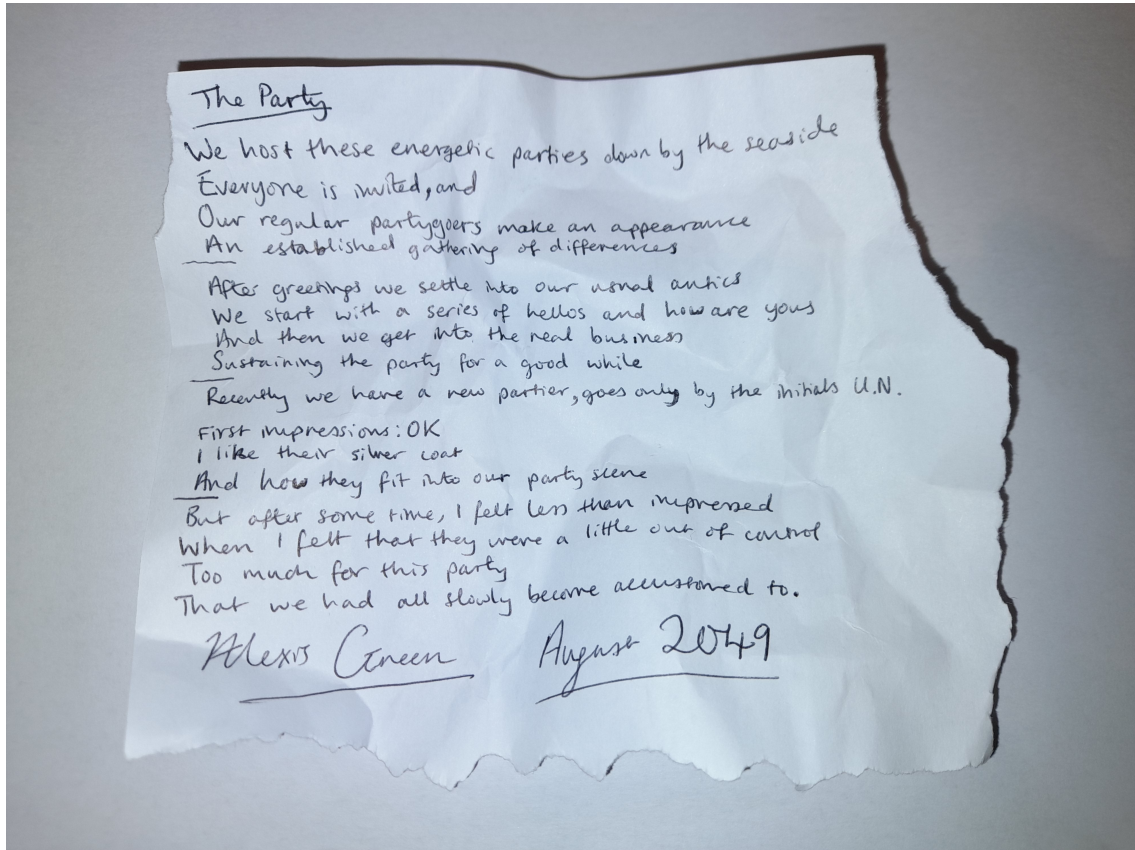 The Party
We host these energetic parties down by the seaside
Everyone is invited, and
Our regular partygoers make an appearance
An established gathering of differences
After greetings we settle into our usual antics
We start with a series of hellos and how are yous
And then we get into the real business
Sustaining the party for a good while
Recently we have a new partier, goes only by the initials U.N.
First impressions: OK
I like their silver coat
And how they fit into our party scene
But after some time, I felt less than impressed
When I felt that they were a little out of control
Too much for this party
That we had all slowly become accustomed to.
Alexis Green August 2049